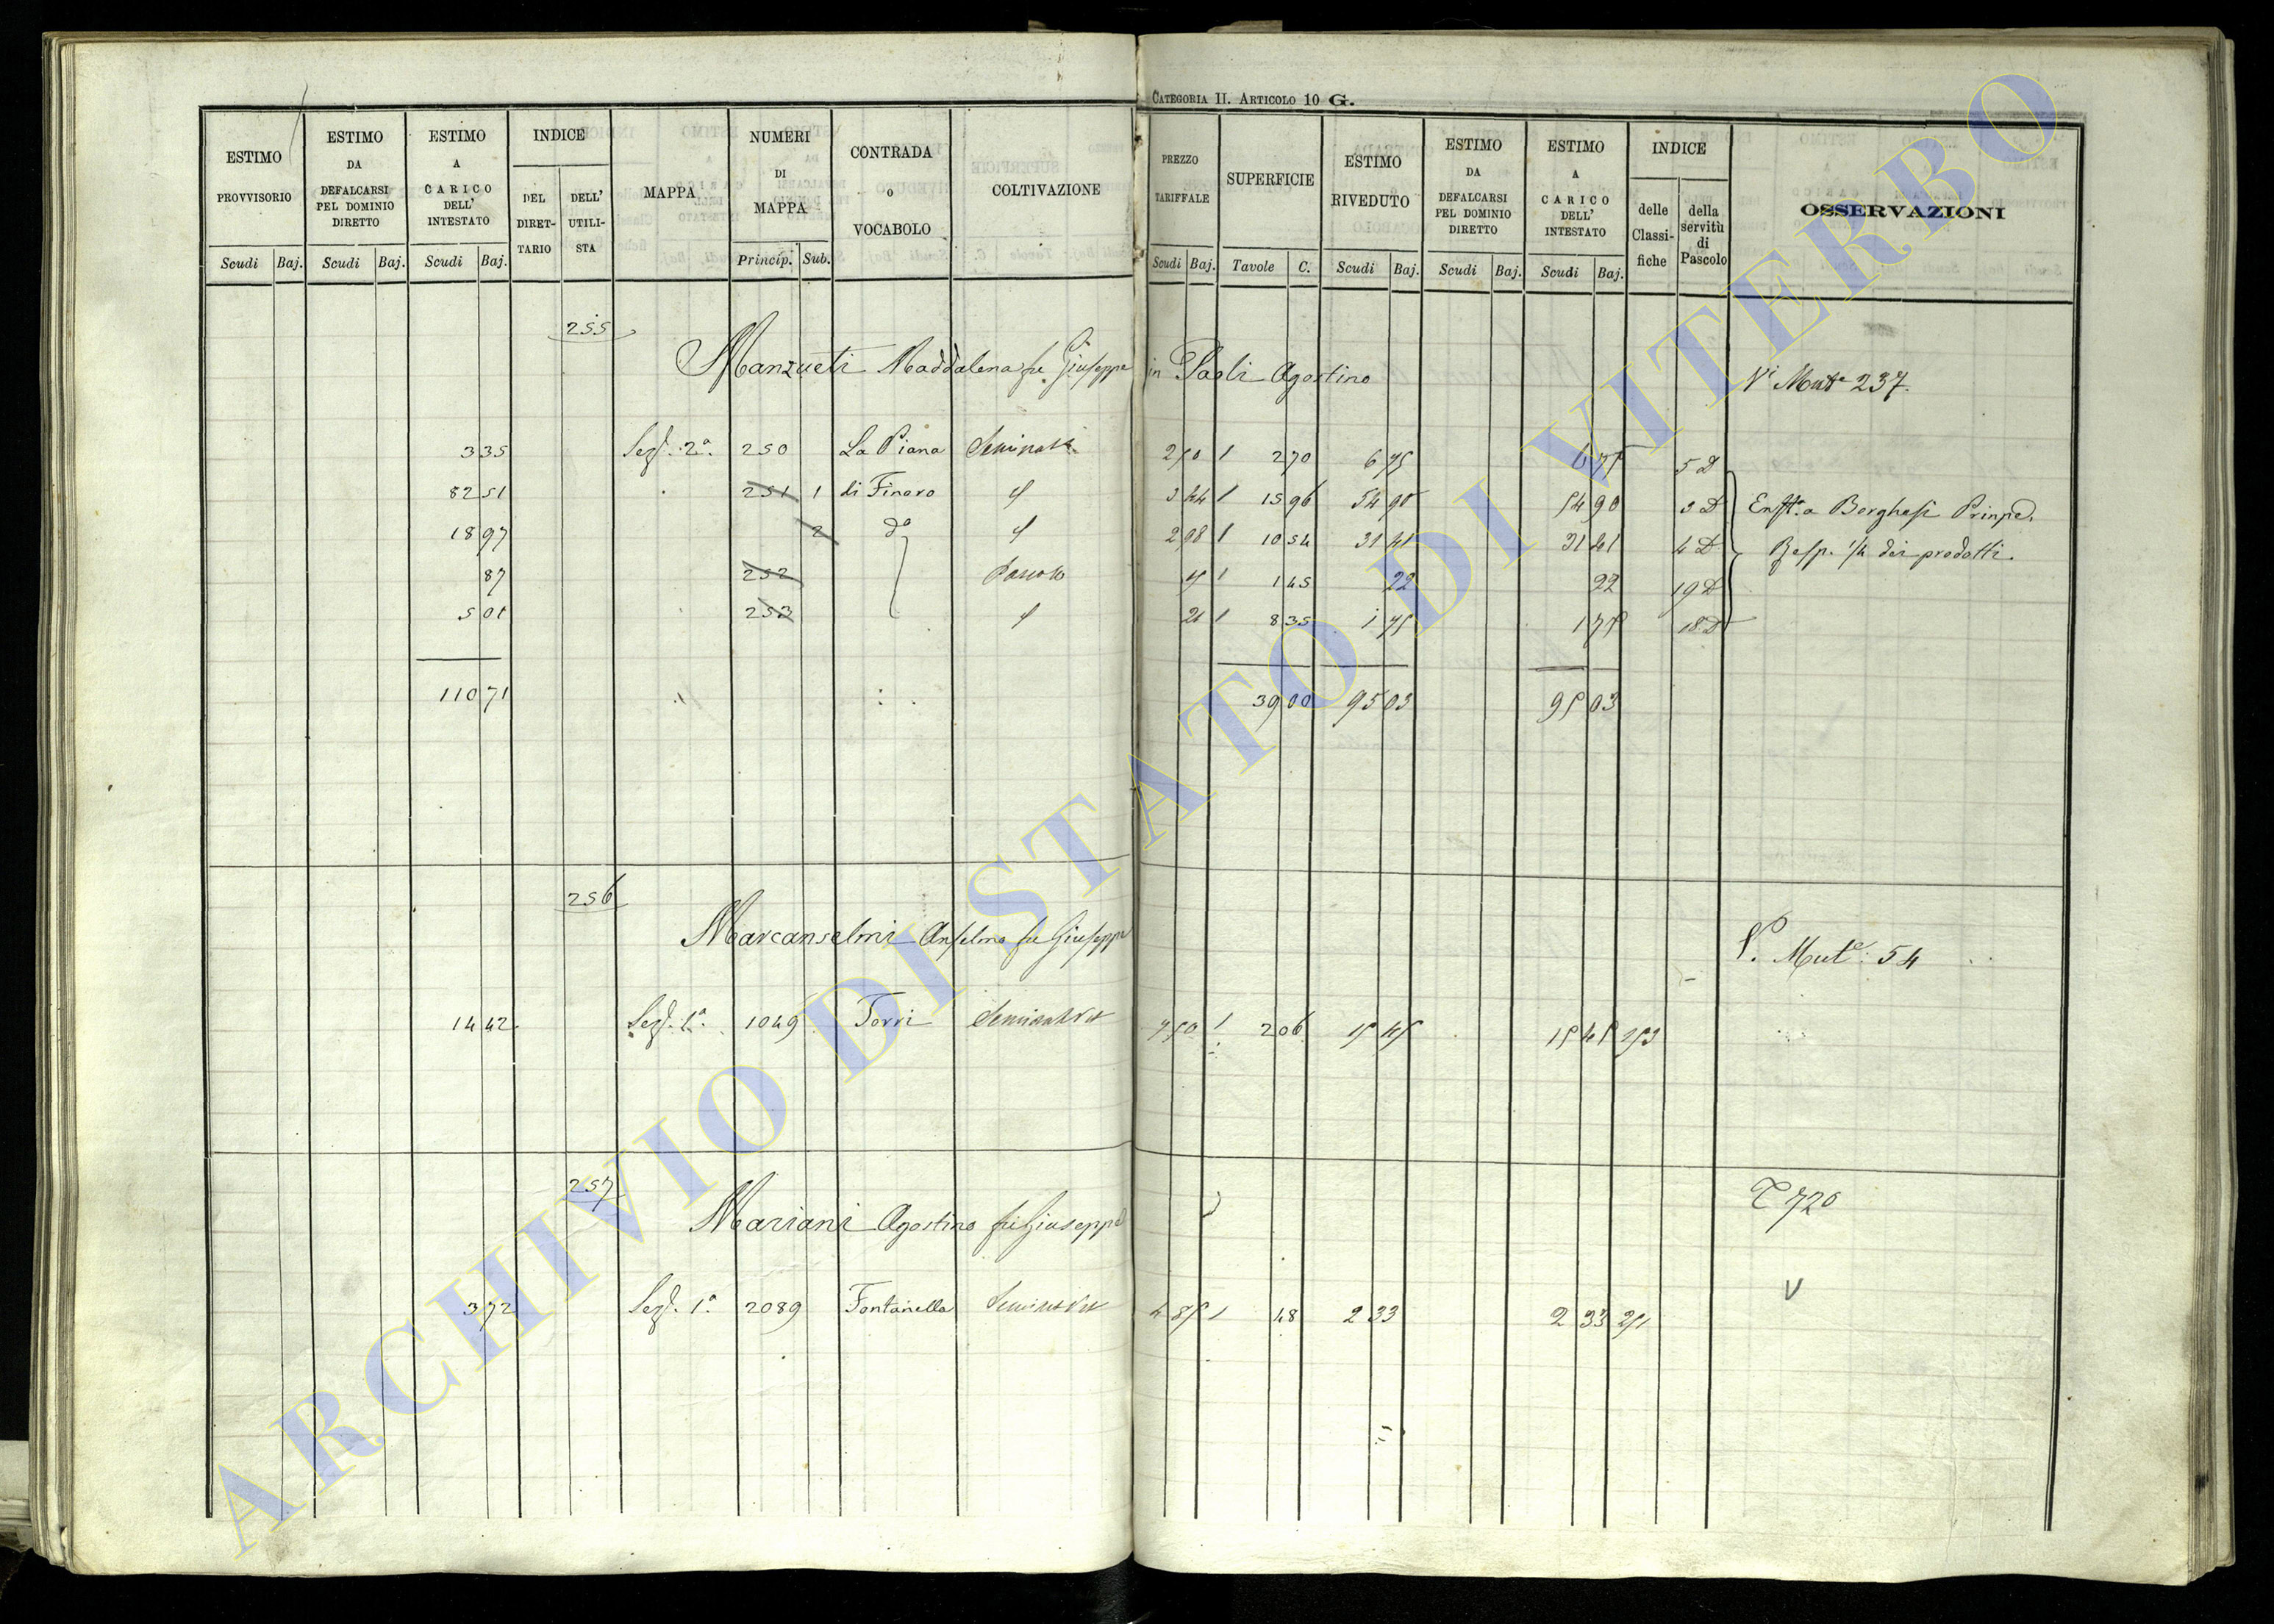 CATEGORIA II. ARTICOLO 10 G.
ESTIMO PROVVISORIO
ESTIMO DA DEFALCARSI PEL DOMINIO DIRETTO
ESTIMO A CARICO DELL' INTESTATO
INDICE
DEL DIRET-TARIO
DELL' UTILI-STA
MAPPA
NUMERI DI MAPPA
CONTRADA o VOCABOLO
COLTIVAZIONE
PREZZO TARIFFALE
SUPERFICIE
ESTIMO RIVEDUTO
ESTIMO DA DEFALCARSI PEL DOMINIO DIRETTO
ESTIMO A CARICO DELL' INTESTATO
INDICE
delle Classi-fiche
della servitù di Pascolo
OSSERVAZIONI
Scudi Baj. Scudi Baj. Scudi Baj. Princip. Sub.
Scudi Baj. Tavole C. Scudi Baj. Scudi Baj. Scudi Baj.
255
Manzueti Maddalena fu Giuseppe in Paoli Agostino Vi Mute 237.
3 35 Sez. 2a. 250 La Piana Seminato 2 50 2 70 6 75 6 75 5 D
82 51 251 1 di Finoro 3 44 15 96 54 90 54 90 3 D Enfta. a Borghesi
18 97 2 do 2 98 10 54 31 41 31 41 4 D Resp. 1/4 dei prodotti
87 252 Pascolo 15 1 45 22 22 19 D
5 01 253 21 8 35 1 75 1 75 18 D
110 71 39 00 95 03 95 03
256
Marcanselmi Anselmo fu Giuseppe V. Mute. 54
14 42 Sez. 1a. 1049 Torri Seminat Vit 7 50 2 06 15 45 15 45 253
257
Mariani Agostino fu Giuseppe T 720
3 72 Sez. 1a. 2089 Fontanella Seminat Vit 4 85 48 2 33 2 33 251
V
ARCHIVIO DI STATO DI VITERBO